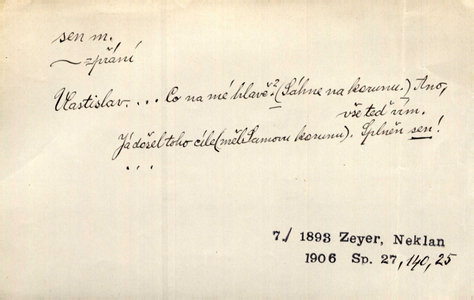 sen m.
~ = přání
Vlastislav... Co na mé hlavě? (Sáhne na korunu.) Ano,
vše teď vím.
Já došel toho cíle (měl Samovu korunu). Splněn sen!
...
7./ 1893 Zeyer, Neklan
1906 Sp. 27, 140, 25